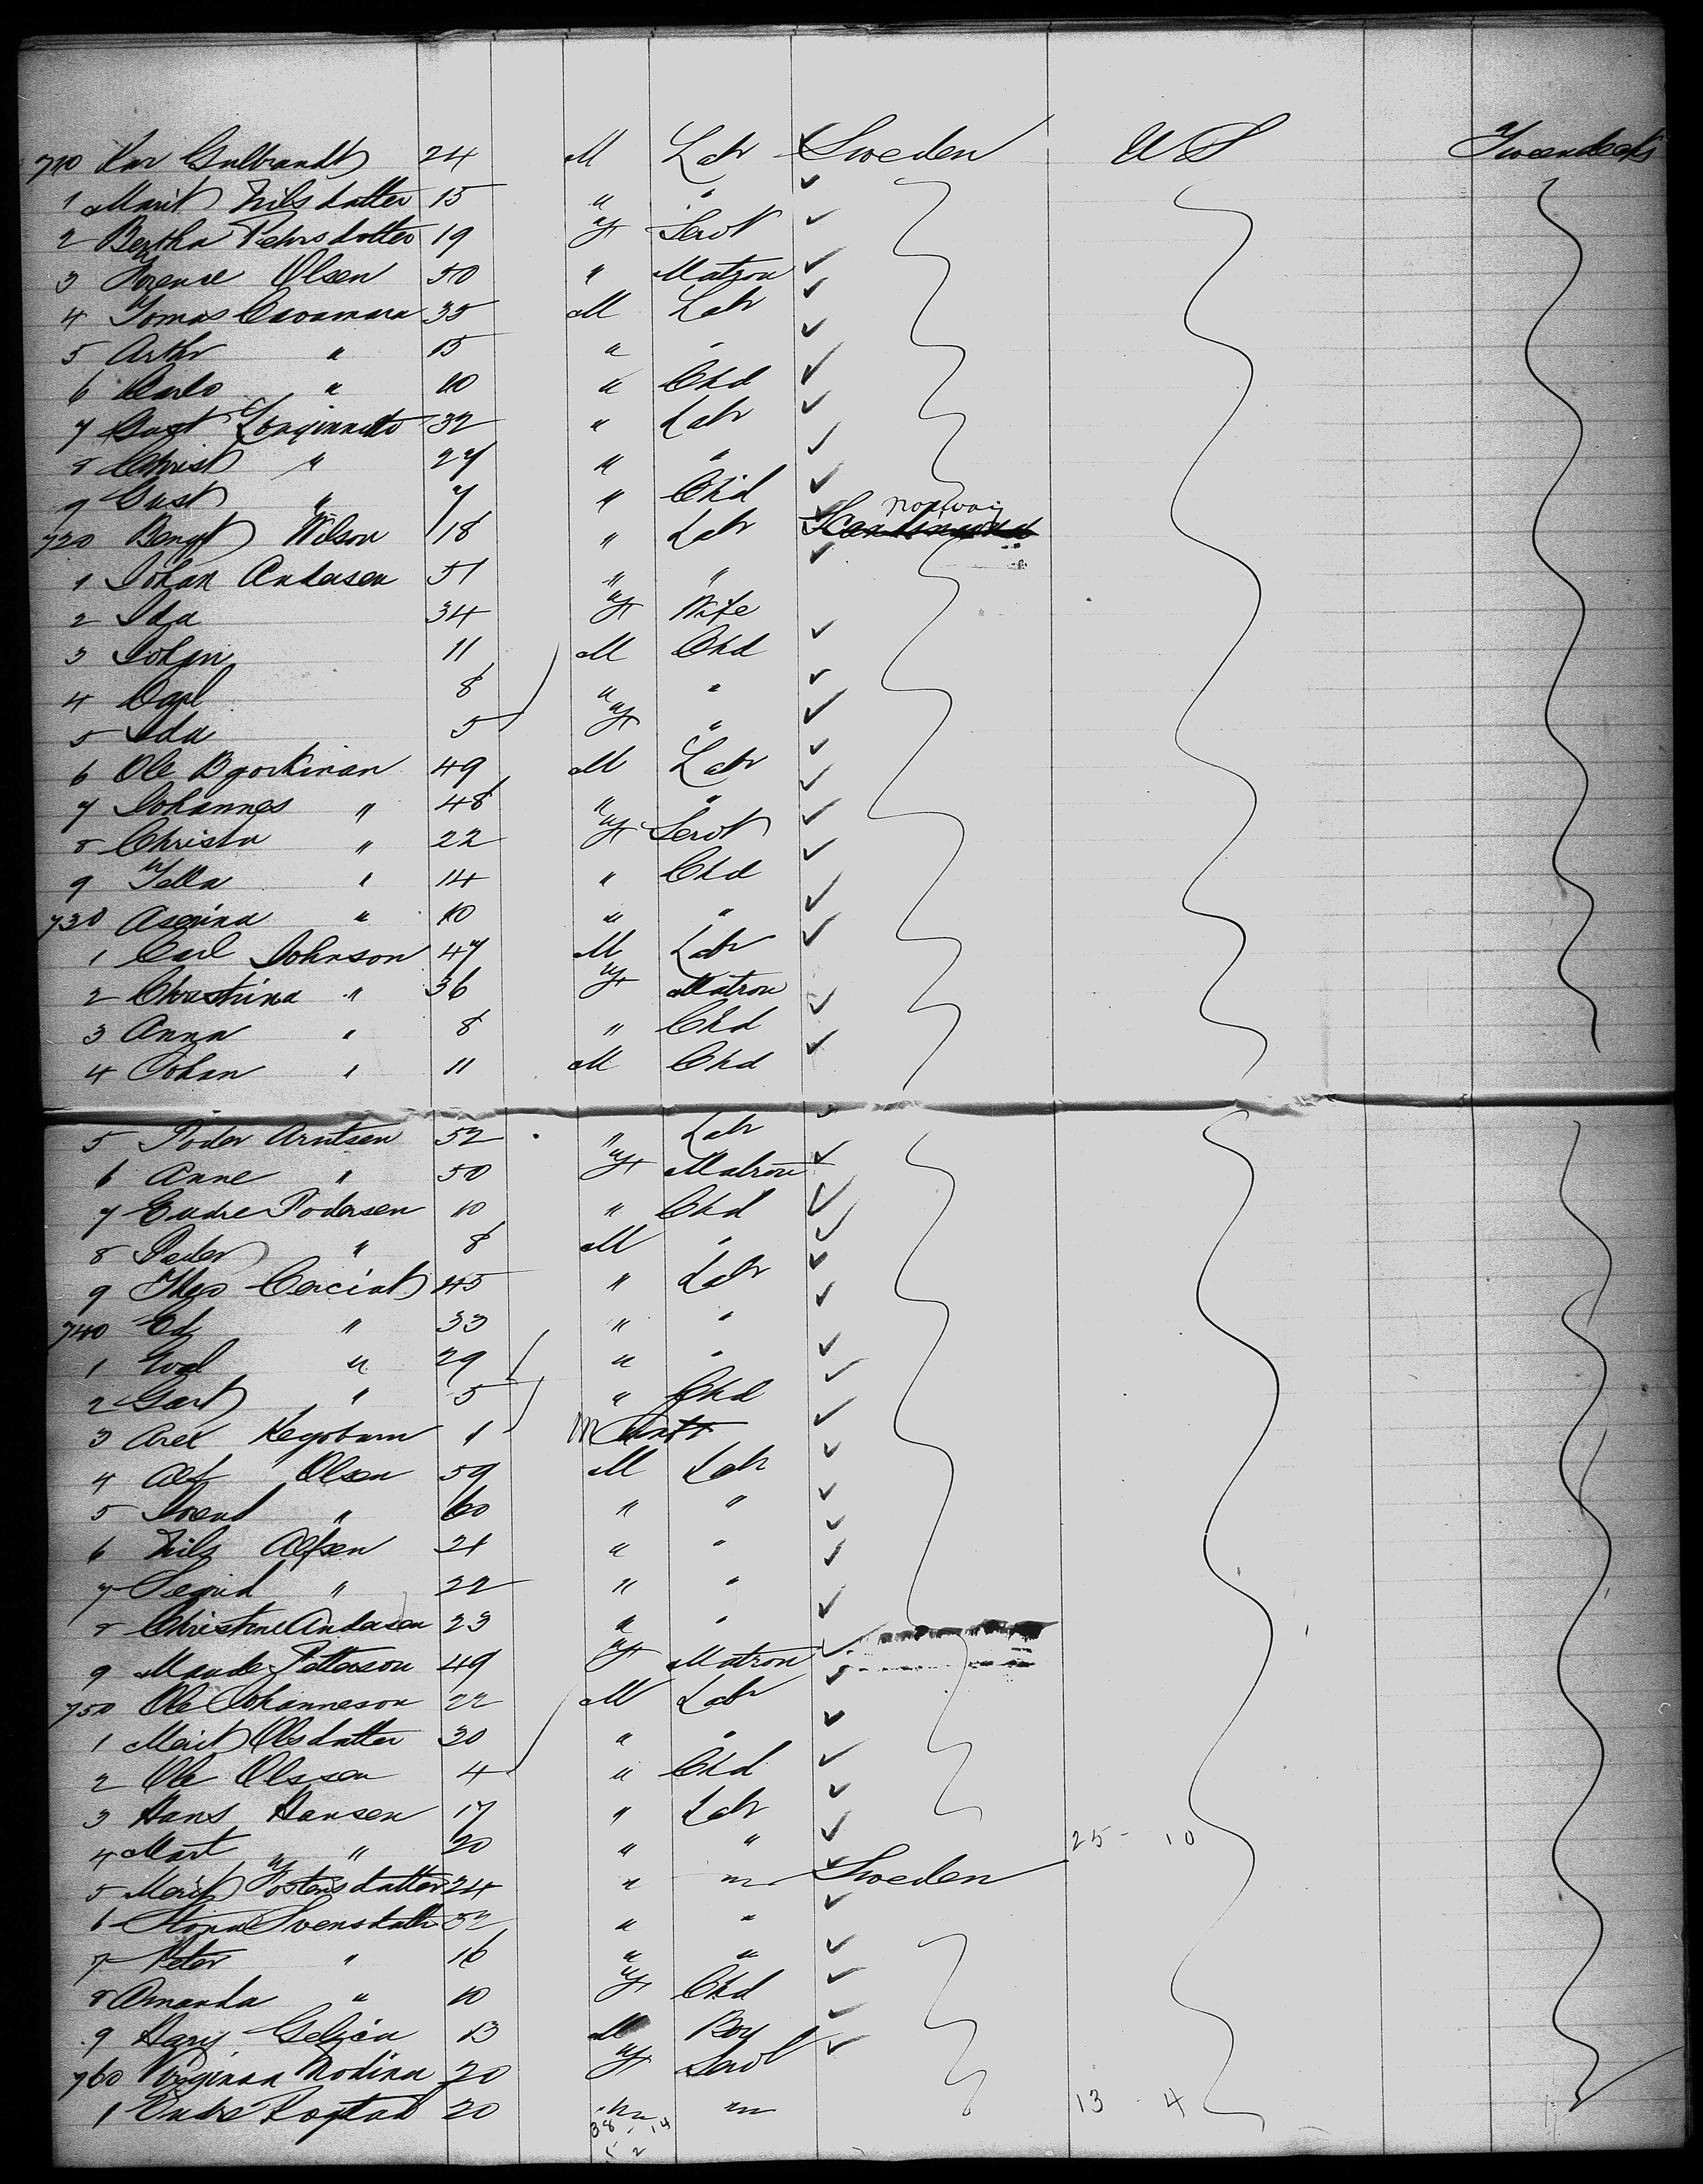 710 Kar Gulbrandt 24 M Labr Sweden U S Tweendecks
1 Marit Nilsdatter 15 " "
2 Bertha Pehrsdotter 19 F Servt
3 Olsen 50 " Matron
4 Tomas Cavamara 35 M Labr
5 Arthr " 15 " "
6 Carlo " 10 " Chd
7 Gust 32 " Labr
8 Christ " 27 " "
9 Gust " 7 " Chd
720 Bengt Wilson 18 " Labr Norway
1 Johan Andersen 51 " "
2 Ida 34 F Wife
3 Johan 11 M Chd
4 Carl 8 " "
5 Ida 5 F "
6 Ole Bjorkman 49 M Labr
7 Johannes " 48 " "
8 Christa " 22 F Servt
9 Tella " 14 " Chd
730 Aserina " 10 " "
1 Carl Johnson 47 M Labr
2 Christina " 36 F Matron
3 Anna " 8 " Chd
4 Johan " 11 M Chd
5 Peder Arntsen 52 " Labr
6 Anne " 50 F Matron
7 Endre Pedersen 10 " Chd
8 Peder " 8 M "
9 Theo Cerciat 45 " Labr
740 Ed " 33 " "
1 Eval " 29 " "
2 Gart " 5 " Chd
3 Axel 1 M
4 Alf Olsen 59 M Labr
5 " 60 " "
6 Nils Alfsen 21 " "
7 Segrid " 22 " "
8 Christine Andersen 23 " "
9 Maude Petterson 49 F Matron
750 Ole Johanneson 22 M Labr
1 Merit Olsdatter 30 " "
2 Ole Olssen 4 " Chd
3 Hans Hansen 17 " Labr
4 Mart " 20 " " 25 - 10
5 Merit Tostensdatter 24 " " Sweden
6 Stina Svensdattr 32 " "
7 Peter " 16 " "
8 Amanda " 10 F Chd
9 Harry 13 M Boy
760 Virginia Modina 20 F Servt
1 Endre Rogstad 20 " " 13 - 4
38 - 14
5 2